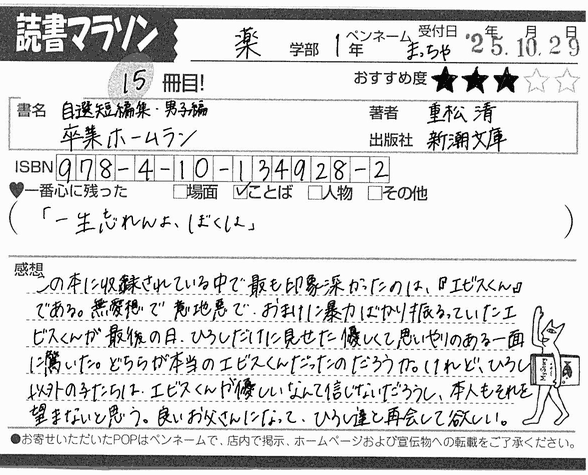 読書マラソン
薬 学部 1年 ペンネーム まっちゃ 受付日 '25年.10月.29日
15 冊目!
おすすめ度 ★★★☆☆
書名 自選短編集・男子編
卒業ホームラン
著者 重松 清
出版社 新潮文庫
ISBN 978-4-10-134928-2
♥一番心に残った □場面 ☑ことば □人物 □その他
(「一生忘れんよ、ぼくは」)
感想
この本に収録されている中で最も印象深かったのは、『エビスくん』
である。無愛想で意地悪で、おまけに暴力ばかり振るっていたエ
ビスくんが最後の日、ひろしだけに見せた優しくて思いやりのある一面
に驚いた。どちらが本当のエビスくんだったのだろうか。けれど、ひろし
以外の子たちは、エビスくんが優しいなんて信じないだろうし、本人もそれを
望まないと思う。良いお父さんになって、ひろし達と再会して欲しい。
●お寄せいただいたPOPはペンネームで、店内で掲示、ホームページおよび宣伝物への転載をご了承ください。